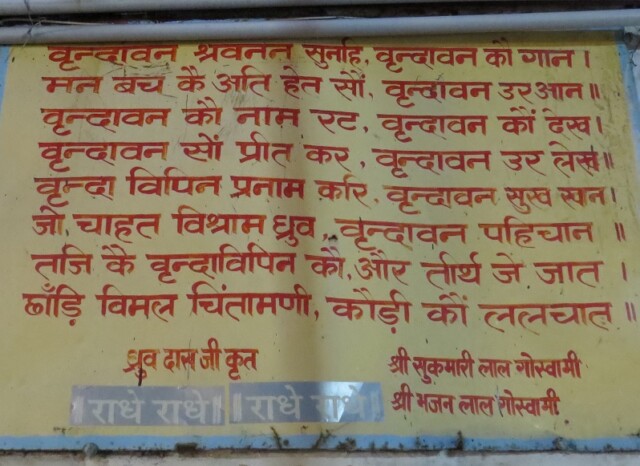 वृन्दावन श्रवनन सुनहि, वृन्दावन कौ गान ।
मन बच कै अति हेत सौं, वृन्दावन उर आन ॥
वृन्दावन कौ नाम रट, वृन्दावन कौं देख ।
वृन्दावन सों प्रीत कर, वृन्दावन उर लेख ॥
वृन्दा विपिन प्रनाम करि, वृन्दावन सुख खान ।
जो, चाहत विश्राम ध्रुव, वृन्दावन पहिचान ॥
तजि कै वृन्दाविपिन कौ, और तीर्थ जे जात ।
छाँड़ि विमल चिंतामणी, कौड़ी कौं ललचात ॥
ध्रुव दास जी कृत
श्री सुकमारी लाल गोस्वामी
श्री भजन लाल गोस्वामी
। राधे राधे ॥ । राधे राधे ।